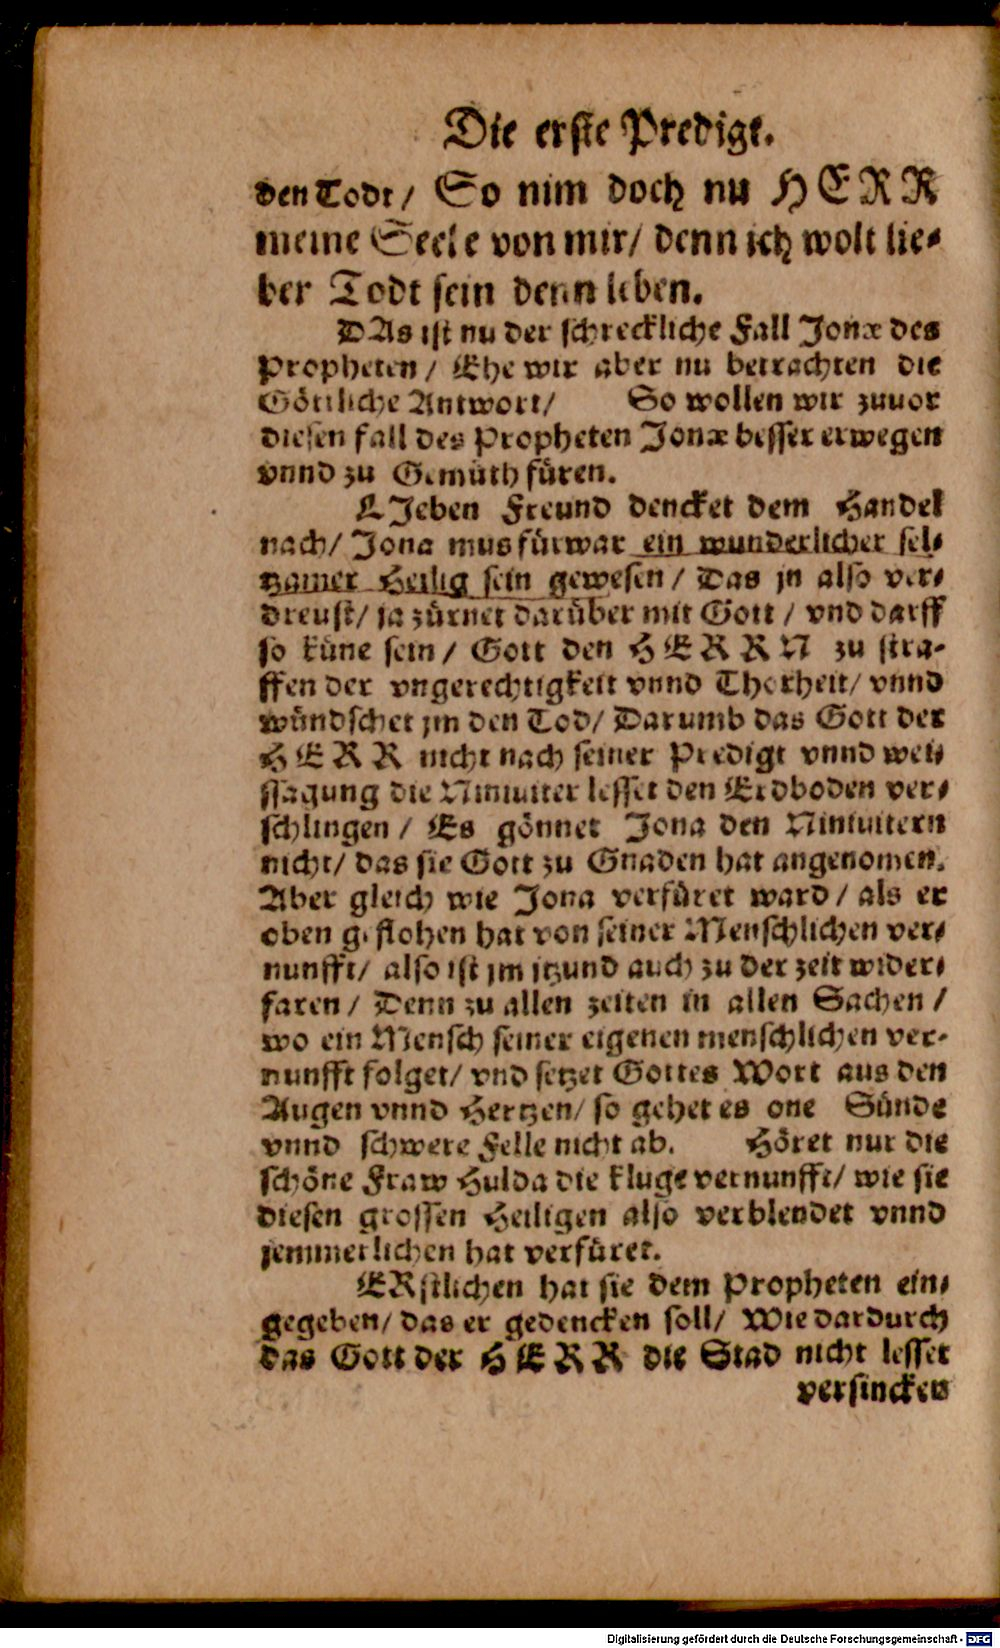 Die erste Predigt.
den Todt / So nim doch nu HERR
meine Seele von mir / denn ich wolt lie⸗
ber Todt sein denn leben.
DAs ist nu der schreckliche Fall Jonæ des
Propheten / Ehe wir aber nu betrachten die
Göttliche Antwort / So wollen wir zuuor
diesen fall des Propheten Jonæ besser erwegen
vnnd zu Gemüth füren.
LJeben Freund dencket dem Handel
nach / Jona mus fürwar ein wunderlicher sel⸗
tzamer Heilig sein gewesen / Das jn also ver⸗
dreust / ja zürnet darüber mit Gott / vnd darff
so küne sein / Gott den HERRN zu stra-
ffen der vngerechtigkeit vnnd Thorheit / vnnd
wündschet jm den Tod / Darumb das Gott der
HERR nicht nach seiner Predigt vnnd weis
ssagung die Niniuiter lesset den Erdboden ver⸗
schlingen / Es gönnet Jona den Niniuitern
nicht / das sie Gott zu Gnaden hat angenomen.
Aber gleich wie Jona verfüret ward / als er
oben geflohen hat von seiner Menschlichen ver⸗
nunfft / also ist jm jtzund auch zu der zeit wider⸗
faren / Denn zu allen zeiten in allen Sachen /
wo ein Mensch seiner eigenen menschlichen ver-
nunfft folget / vnd setzet Gottes Wort aus den
Augen vnnd Hertzen / so gehet es one Sünde
vnnd schwere Felle nicht ab. Höret nur die
schöne Fraw Hulda die kluge vernunfft / wie sie
diesen grossen Heiligen also verblendet vnnd
jemmerlichen hat verfüret.
ERstlichen hat sie dem Propheten ein⸗
gegeben / das er gedencken soll / Wie dardurch
das Gott der HERR die Stad nicht lesset
versincken
Digitalisierung gefördert durch die Deutsche Forschungsgemeinschaft - DFG